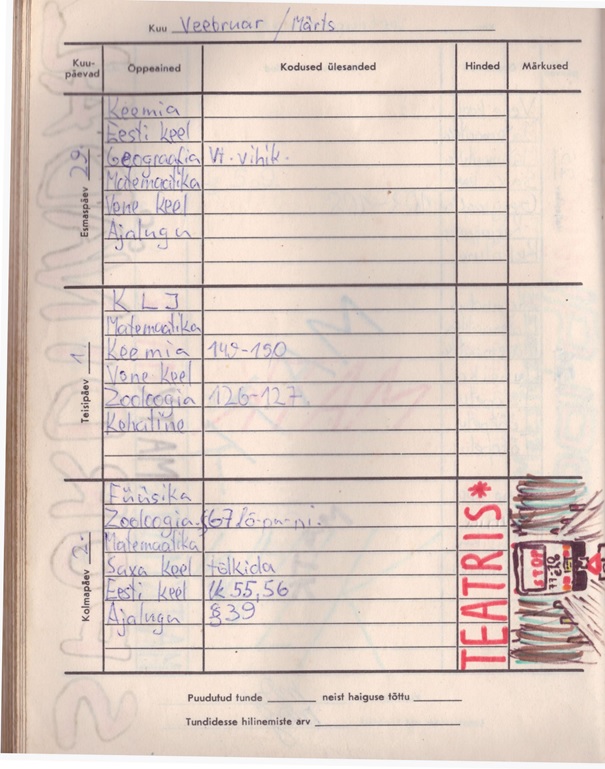 Kuu Veebruar / Märts
Kuu-
päevad
Õppeained
Kodused ülesanded
Hinded
Märkused
Esmaspäev 29.
Keemia
Eesti keel
Geograafia Vt. vihik.
Matemaatika
Vene keel
Ajalugu
Teisipäev 1.
K L J
Matemaatika
Keemia 149-150
Vene keel
Zooloogia 126-127.
Kehaline
Kolmapäev 2.
Füüsika
Zooloogia §67
Matemaatika
Saxa keel tõlkida
Eesti keel lk 55,56
Ajalugu §39
TEATRIS*
STOP
Puudutud tunde neist haiguse tõttu
Tundidesse hilinemiste arv